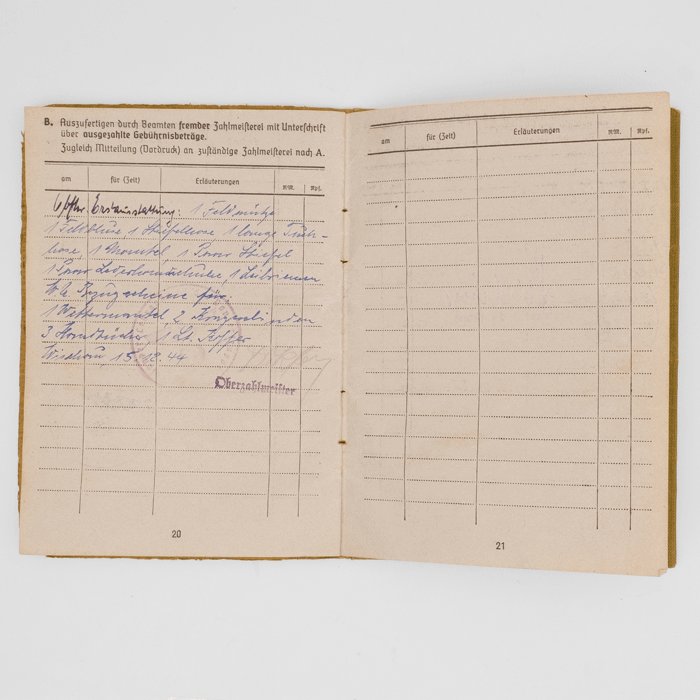 B. Auszufertigen durch Beamten fremder Zahlmeisterei mit Unterschrift
über ausgezahlte Gebührnisbeträge.
Zugleich Mitteilung (Vordruck) an zuständige Zahlmeisterei nach A.
am für (Zeit) Erläuterungen RM. Rpf.
Erstausstattung: 1 Feldmütze
1 Feldbluse 1 Stiefelhose 1 lange Tuch-
hose, 1 Mantel 1 Paar Stiefel
1 Paar Lederhandschuhe, 1 Leibriemen
Bezugscheine für:
1 Wettermantel 2 Kragenbinden
3 Handtücher 1 Lt. Koffer
Wischau 15.12.44
Oberzahlmeister
20
am für (Zeit) Erläuterungen RM. Rpf.
21